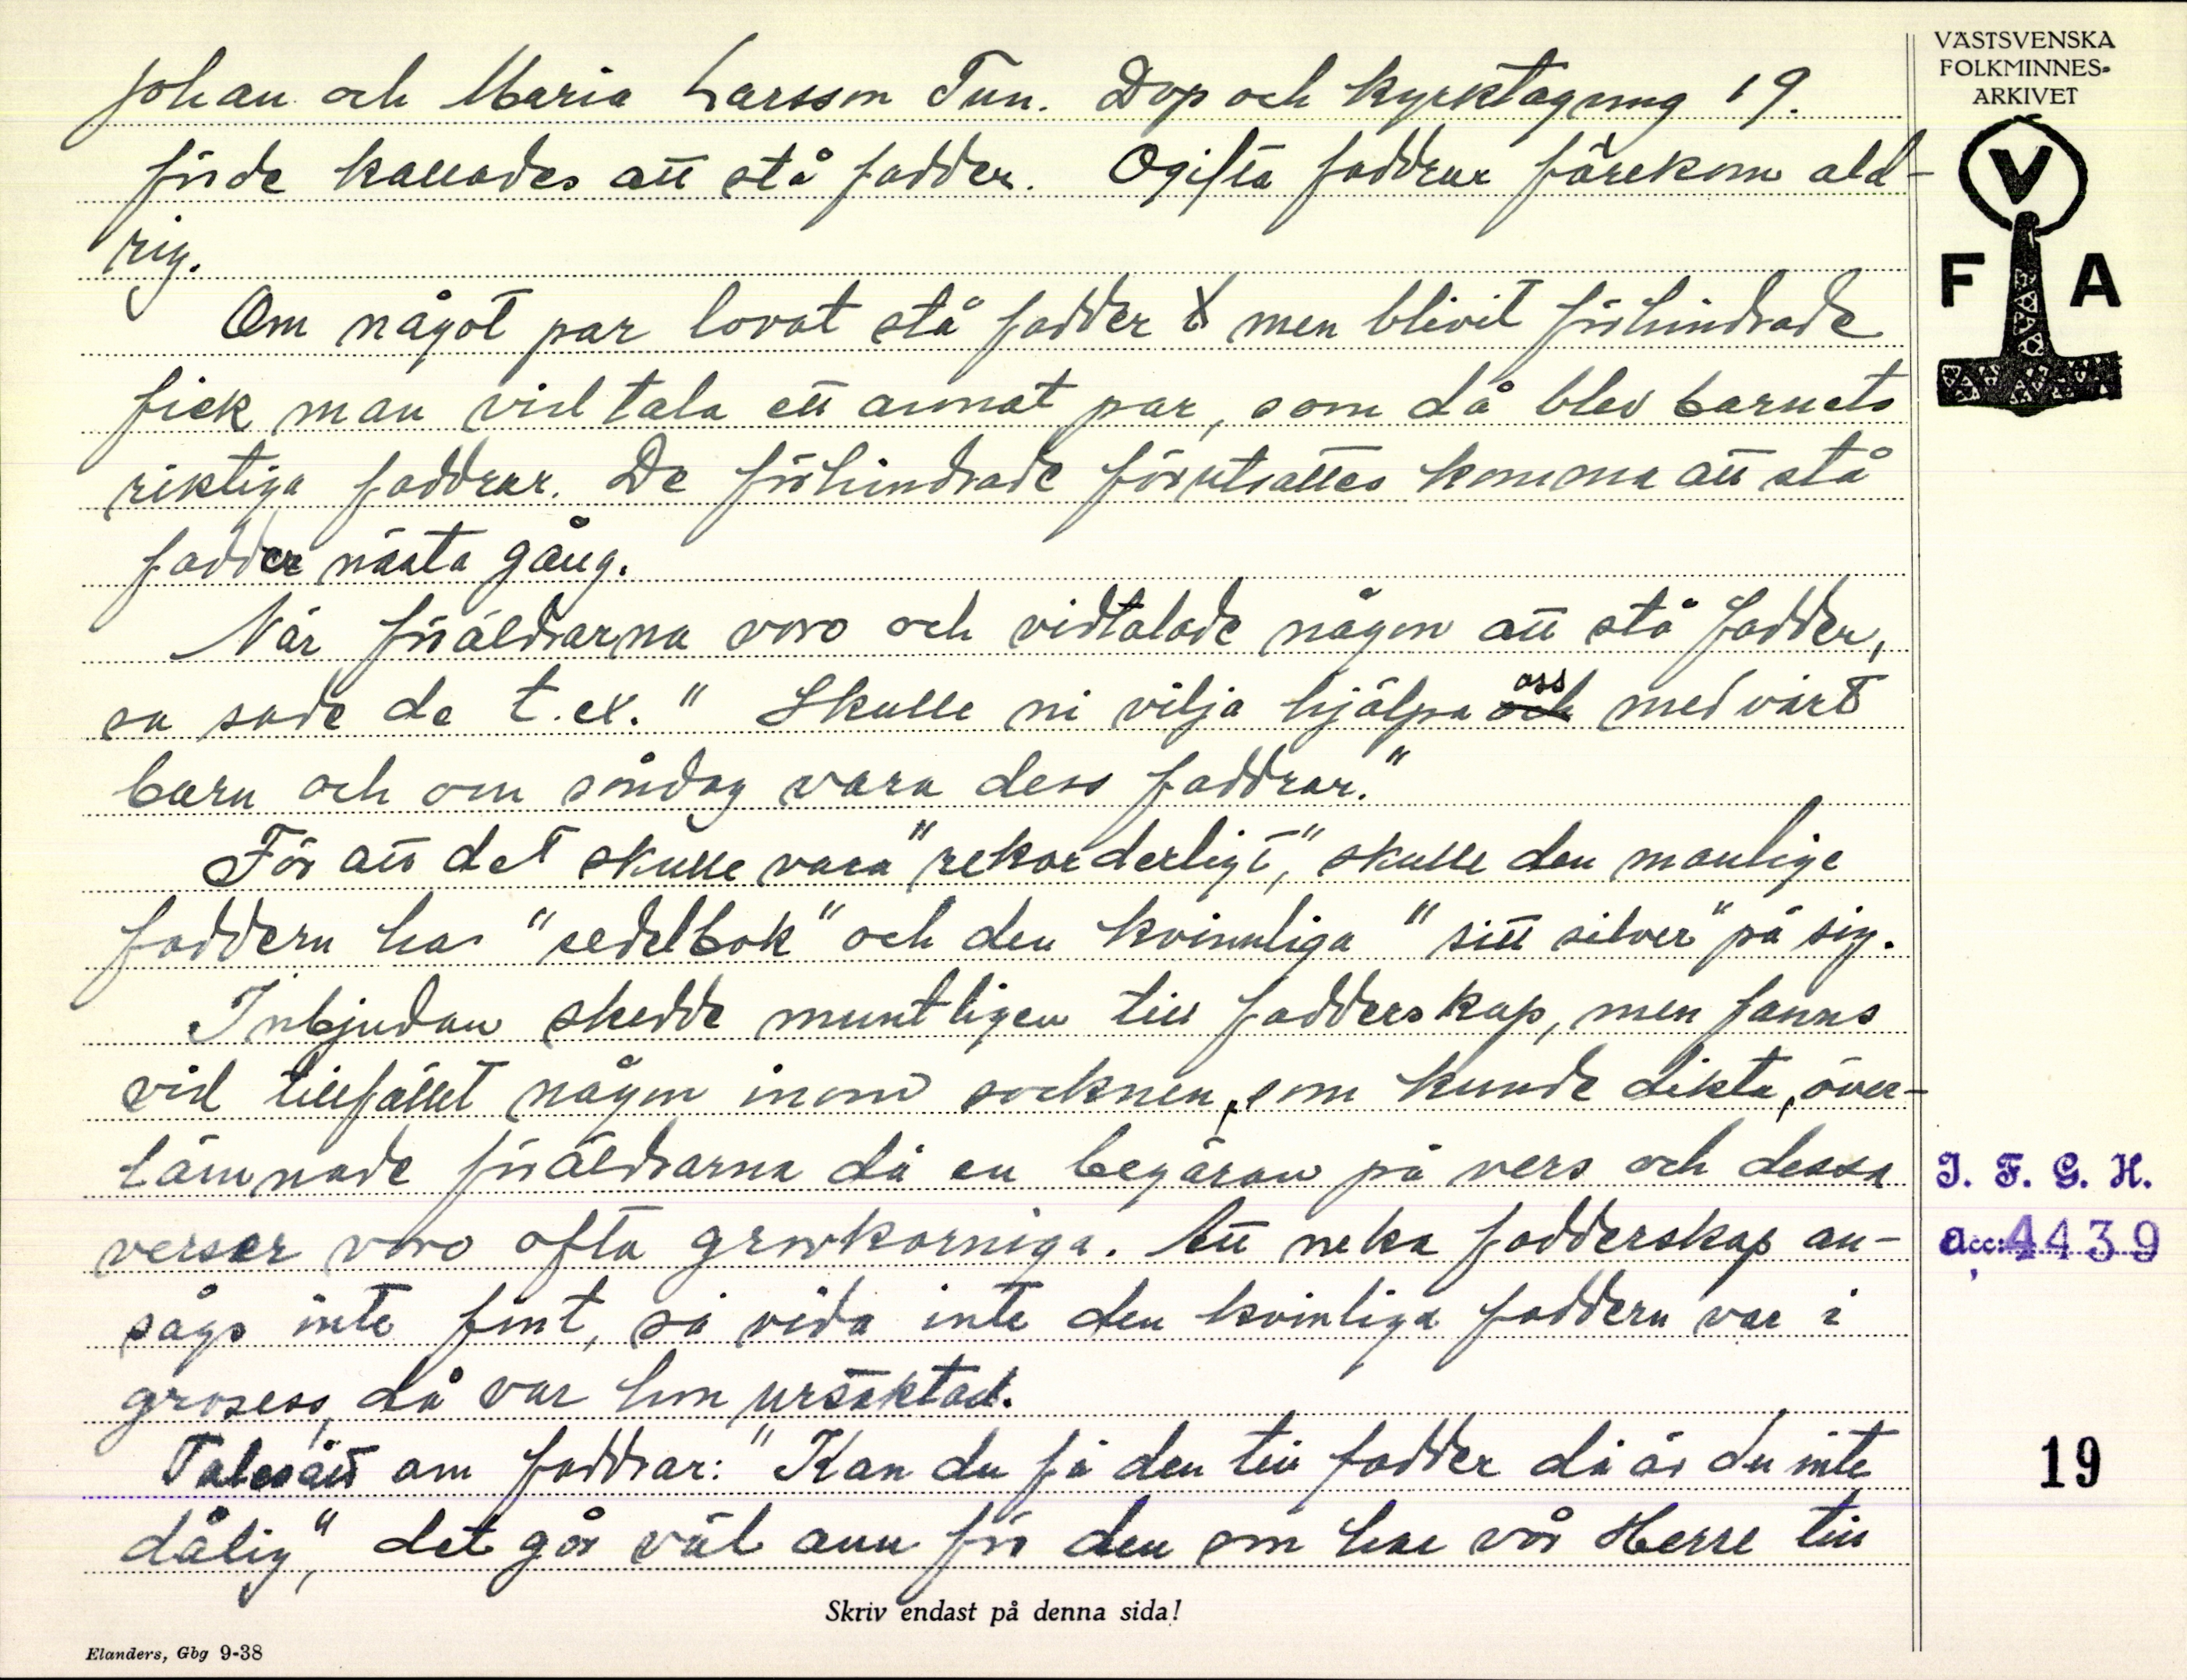 Johan och Maria Larsson Tun. Dop och kyrktagning 19.
förde kallades att stå fadder. Ogifta faddrar förekom ald-
rig.
Om något par lovat stå fadder men blivit förhindrade
fick man vidtala ett annat par, som då blev barnets
riktiga faddrar. De förhindrade förutsattes komma att stå
fadder nästa gång.
När föräldrarna voro och vidtalade någon att stå fadder,
sa sade de t.ex. " Skulle ni vilja hjälpa oss med vårt
barn och om söndag vara dess faddrar."
För att det skulle vara "rekorderligt", skulle den manlige
faddern ha "sedelbok" och den kvinnliga "sitt silver" på sig.
Inbjudan skedde muntligen till fadderskap, men fanns
vid tillfället någon inom socknen, som kunde dikta, över-
lämnade föräldrarna då en begäran på vers och dessa
verser voro ofta grovkorniga. Att neka fadderskap an-
sågs inte fint, så vida inte den kvinliga faddern var i
grosess, då var hon ursäktad.
Talesätt om faddrar: "Kan du få den till fadder då är du inte
dålig", det går väl ann för den som har vår Herre till
Skriv endast på denna sida!
Elanders, Gbg 9-38
VÄSTSVENSKA
FOLKMINNES-
ARKIVET
V
F A
I. F. G. H.
Acc: 4439
19